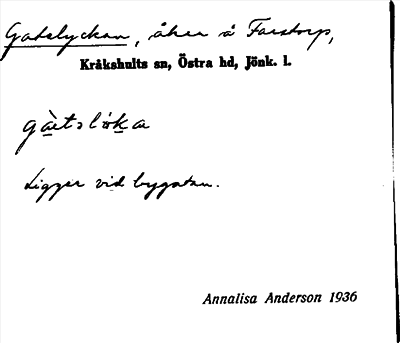 Gatslyckan, åker å Farstorp,
Kråkshults sn, Östra hd, Jönk. l.
Ligger vid bygatan.
Annalisa Anderson 1936